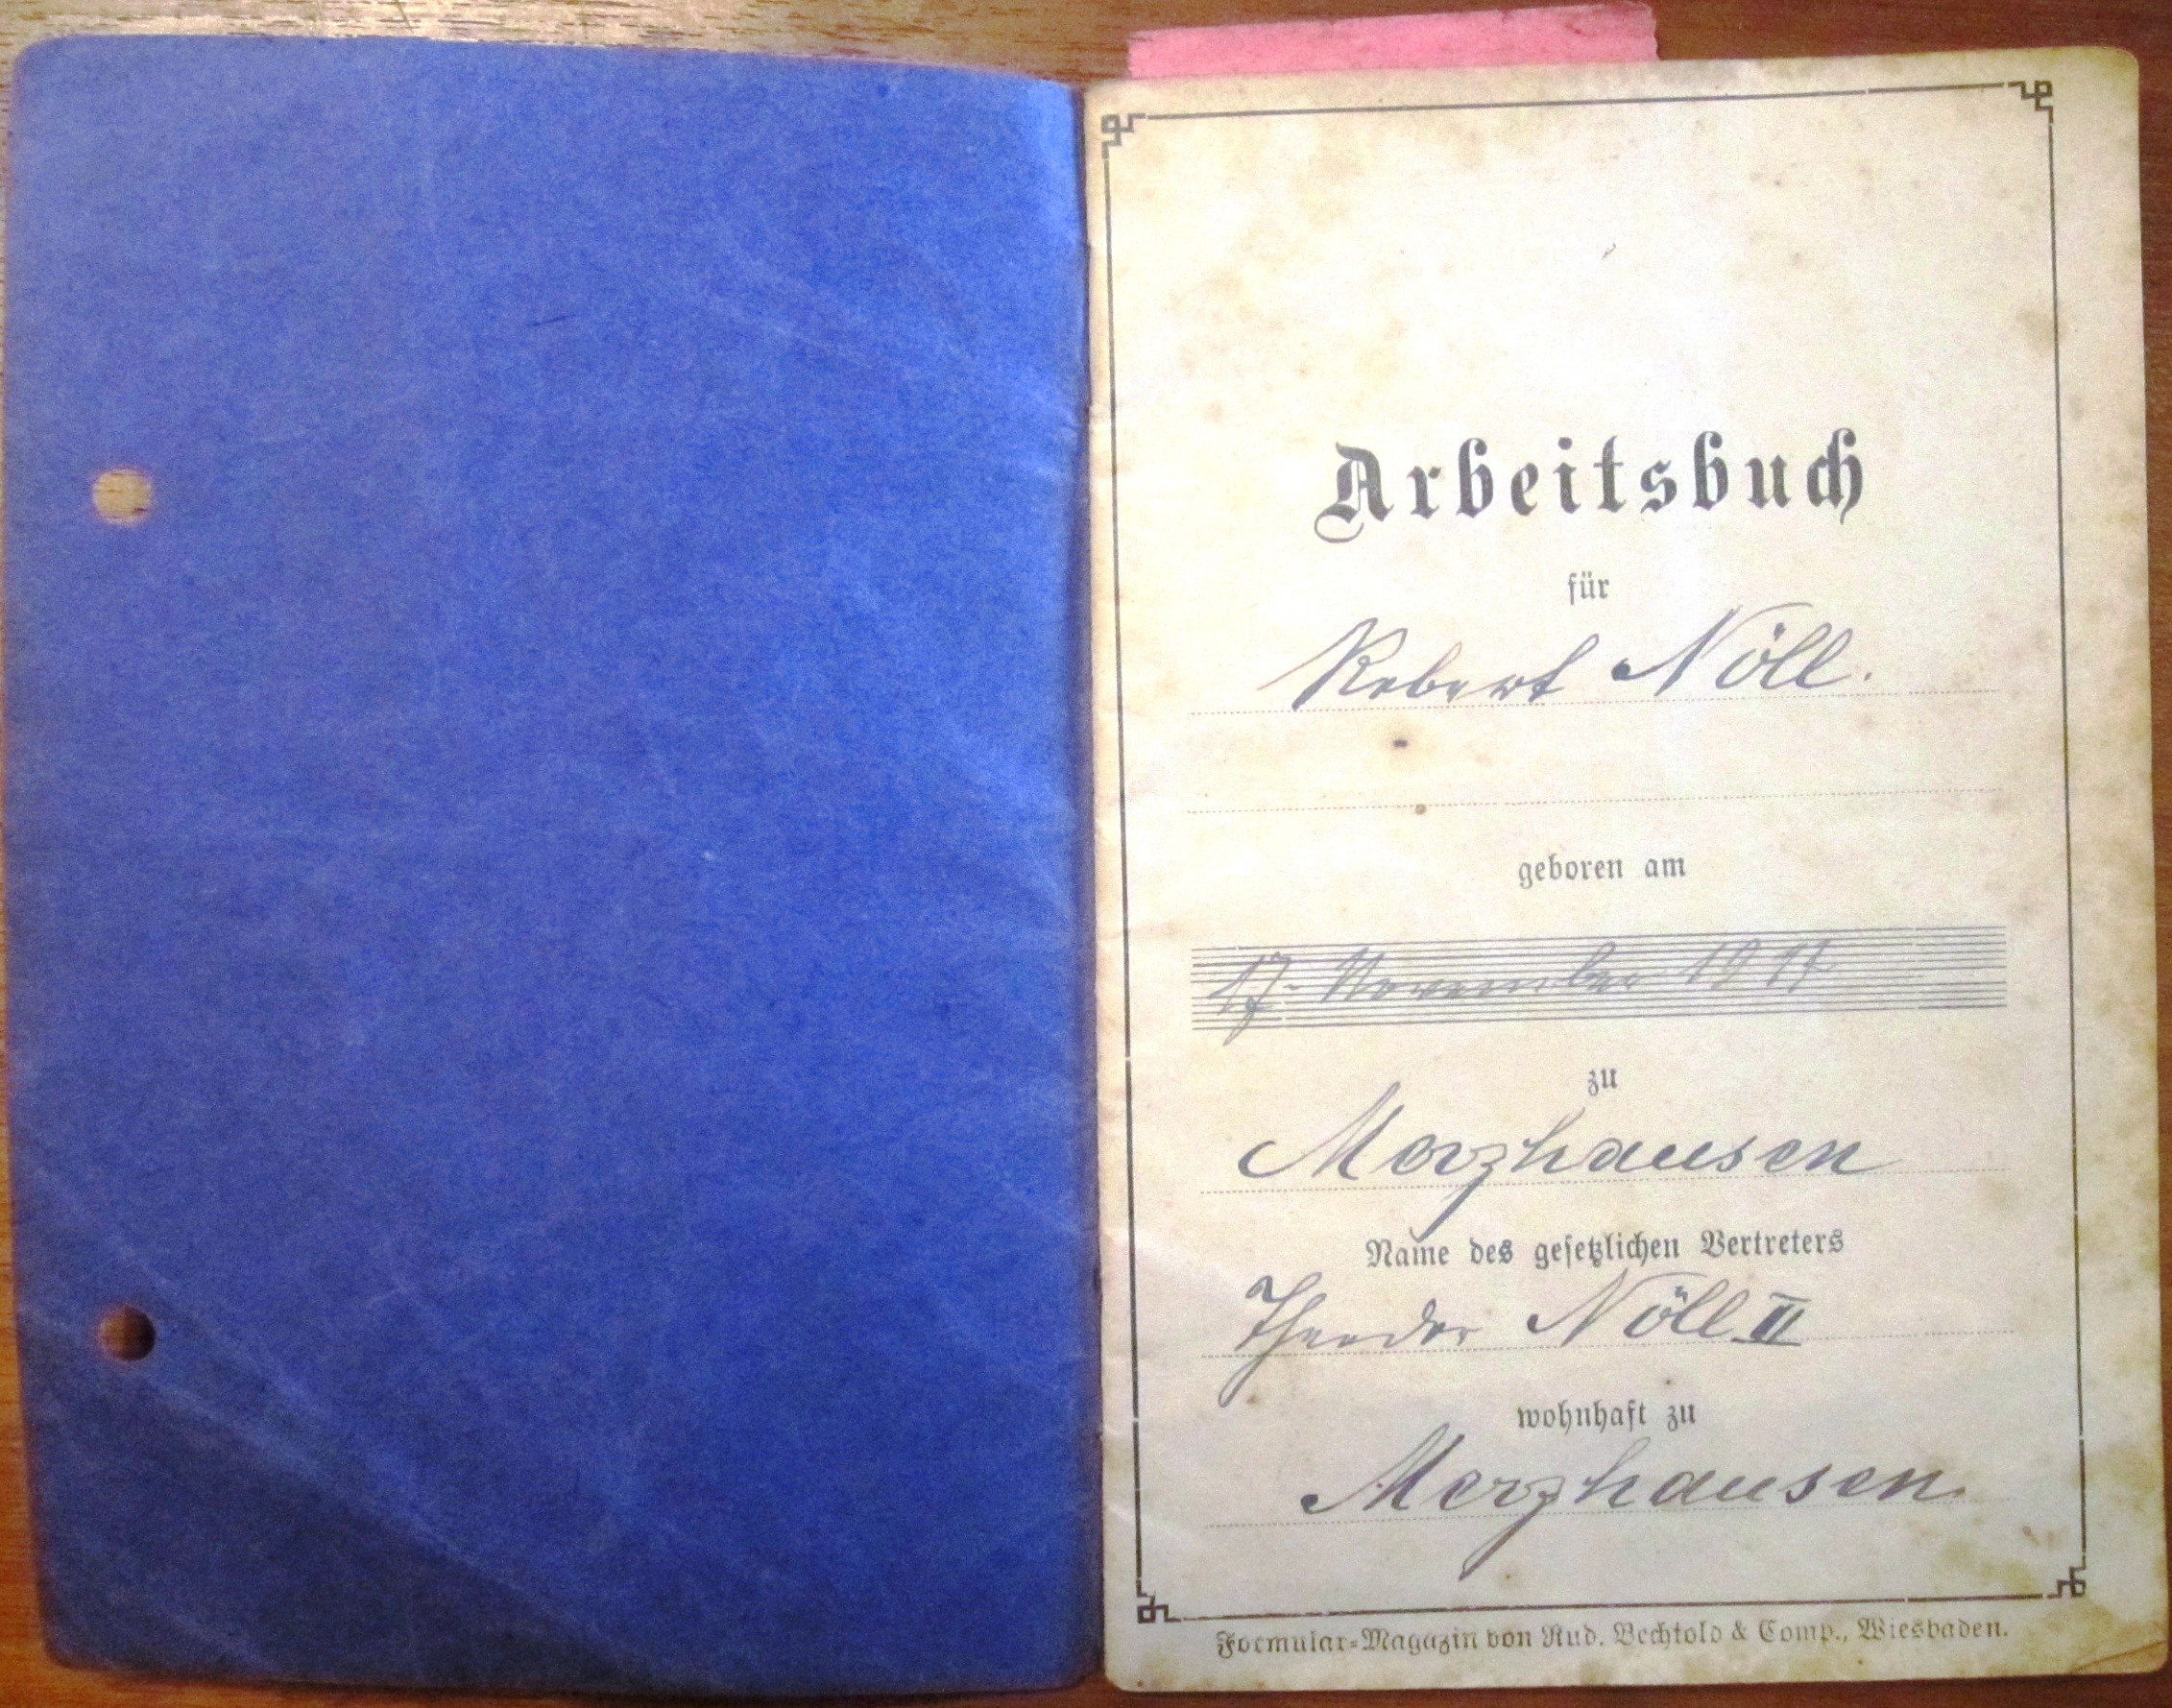 Arbeitsbuch
für
Robert Nöll.
geboren am
17. November
zu
Merzhausen
Name des gesetzlichen Vertreters
Theodor Nöll II
wohnhaft zu
Merzhausen.
Formular-Magazin von Rud. Bechtold & Comp., Wiesbaden.